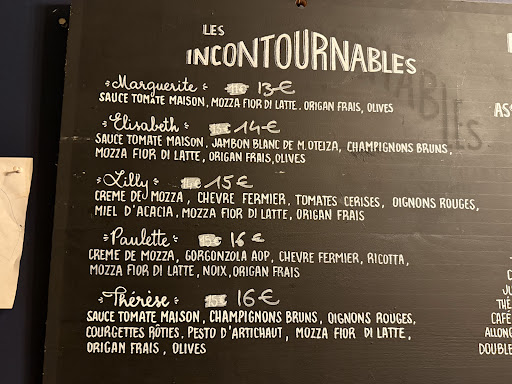 LES
INCONTOURNABLES
Marguerite 13€
SAUCE TOMATE MAISON, MOZZA FIOR DI LATTE, ORIGAN FRAIS, OLIVES
Elisabeth 14€
SAUCE TOMATE MAISON, JAMBON BLANC DE M.OTEIZA, CHAMPIGNONS BRUNS,
MOZZA FIOR DI LATTE, ORIGAN FRAIS, OLIVES
Lilly 15€
CREME DE MOZZA, CHEVRE FERMIER, TOMATES CERISES, OIGNONS ROUGES,
MIEL D'ACACIA, MOZZA FIOR DI LATTE, ORIGAN FRAIS
Paulette 16€
CREME DE MOZZA, GORGONZOLA AOP, CHEVRE FERMIER, RICOTTA,
MOZZA FIOR DI LATTE, NOIX, ORIGAN FRAIS
Thérèse 16€
SAUCE TOMATE MAISON, CHAMPIGNONS BRUNS, OIGNONS ROUGES,
COURGETTES RÔTIES, PESTO D'ARTICHAUT, MOZZA FIOR DI LATTE,
ORIGAN FRAIS, OLIVES
AS
JU
THÉ
CAFÉ
ALLONG
DOUBLE